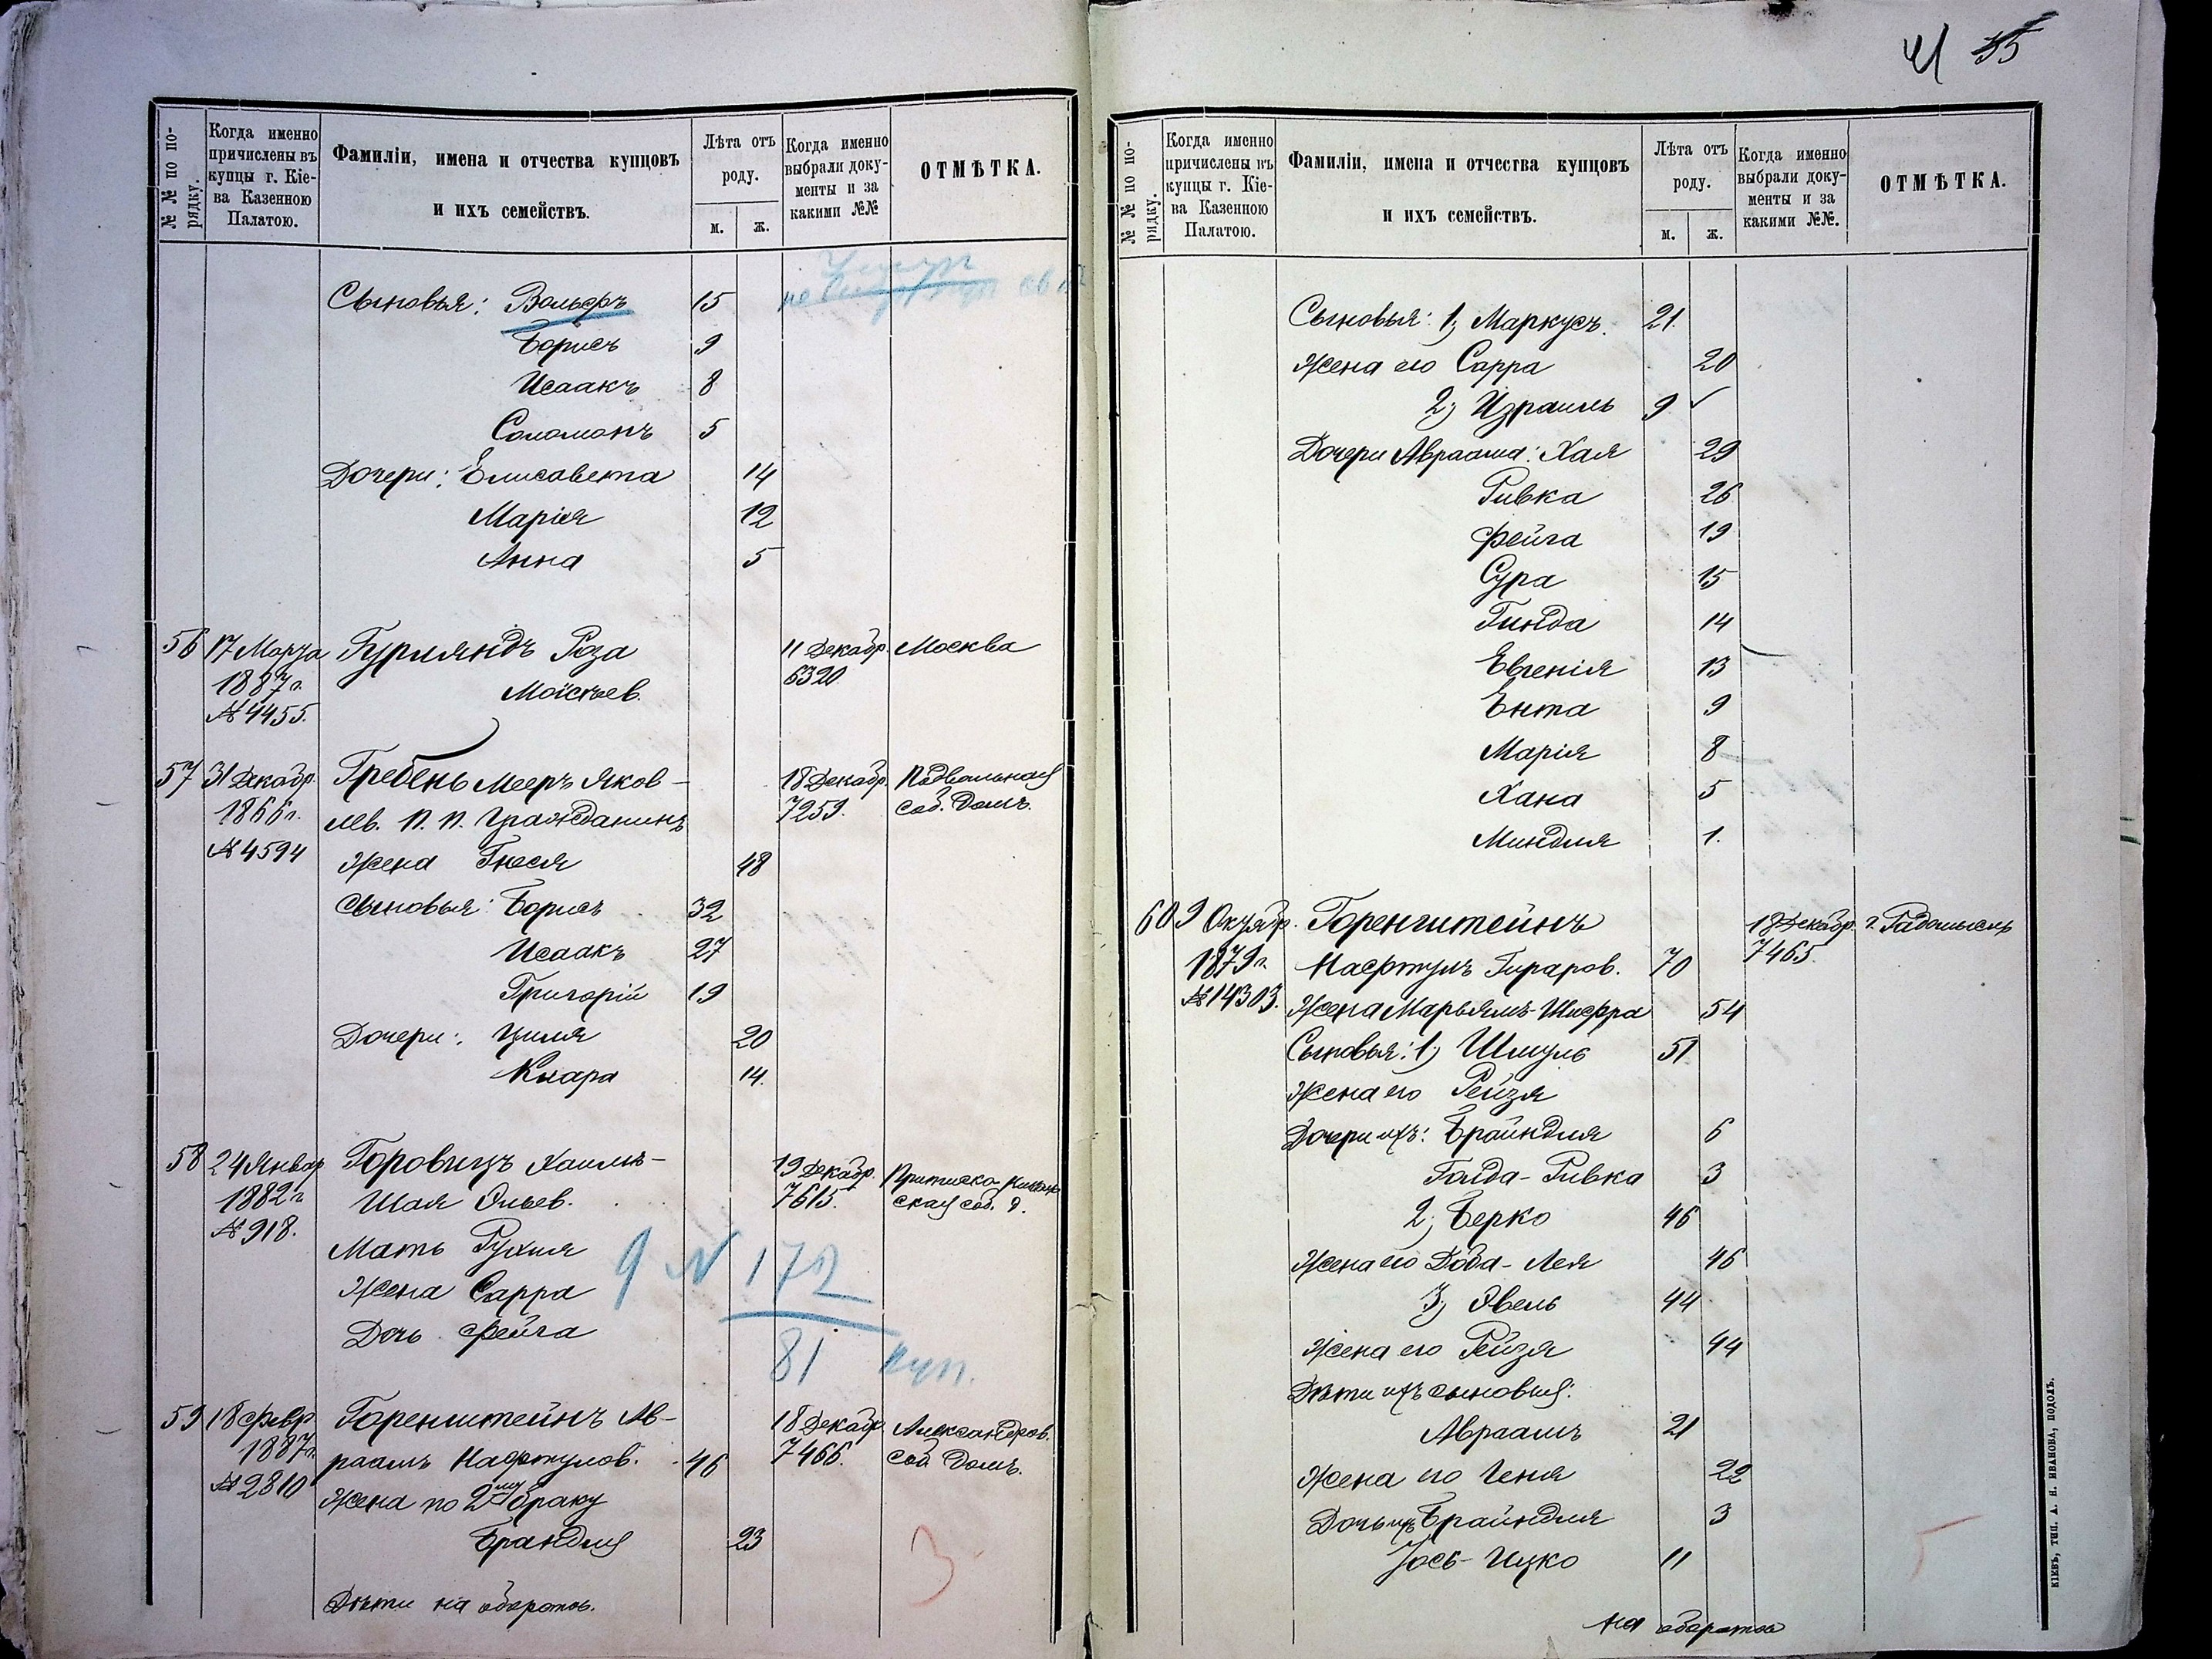 41 35
№№ по по-
рядку.
Когда именно
причислены въ
купцы г. Кіе-
ва Казенною
Палатою.
Фамиліи, имена и отчества купцовъ
и ихъ семействъ.
Лѣта отъ
роду.
м. ж.
Когда именно
выбрали доку-
менты и за
какими №№
ОТМѢТКА.
Сыновья: Вольфъ 15
Борисъ 9
Исаакъ 8
Соломонъ 5
Дочери: Елисавета 14
Марія 12
Анна 5
56 17 Марта Гурляндъ Роза 11 Декабр. Москва
1887 г. Моисѣев. 6320
№ 4455.
57 31 Декабр. Гребень Мееръ Яков- 18 Декабр. Подвальная
1866 г. лев. П. П. Гражданинъ 7259. соб. домъ.
№ 4594 Жена Гнеся 48
Сыновья: Борисъ 32
Исаакъ 27
Григорій 19
Дочери: Циля 20
Клара 14.
58 24 Январ Горовицъ Хаимъ- 19 Декабр.
1882 г. Шая 7615. ская соб. д.
№ 918. Мать Рухля
Жена Сарра
Дочь Фейга
9 N 172
81 куп.
59 18 Февр. Горенштейнъ Ав- 18 Декабр. Александров.
1887 г. раамъ Нафтулов. 46 7466. соб. домъ.
№ 2810 Жена по 2му браку
Брандля 23
3
Дѣти на оборотѣ.
№№ по по-
рядку.
Когда именно
причислены въ
купцы г. Кіе-
ва Казенною
Палатою.
Фамиліи, имена и отчества купцовъ
и ихъ семействъ.
Лѣта отъ
роду.
м. ж.
Когда именно
выбрали доку-
менты и за
какими №№.
ОТМѢТКА.
Сыновья: 1) Маркусъ. 21.
Жена его Сарра 20
2) Израиль 9
Дочери Авраама: Хая 29
Ривка 26
Фейга 19
Сура 15
Гинда 14
Евгенія 13
Ента 9
Марія 8
Хана 5
Миндля 1.
60 9 Октябр. Горенштейнъ 18 Декабр. г. Радомысль
1879 г. Нафтулъ Гираров. 70 7465.
№ 14303. Жена Марьямъ-Шифра 54
Сыновья: 1) Шмуль 51
Жена его Рейзя
Дочери ихъ: Брайндля 6
Голда-Ривка 3
2) Берко 46
Жена его Доба-Лея 46
3) Овель 44
Жена его Рейзя 44
Дѣти ихъ сыновья:
Авраамъ 21
Жена его Геня 22
Дочь ихъ Брайндля 3
Іось-Ицко 11
на оборотѣ
КІЕВЪ, ТИП. А. Н. ИВАНОВА, ПОДОЛЪ.